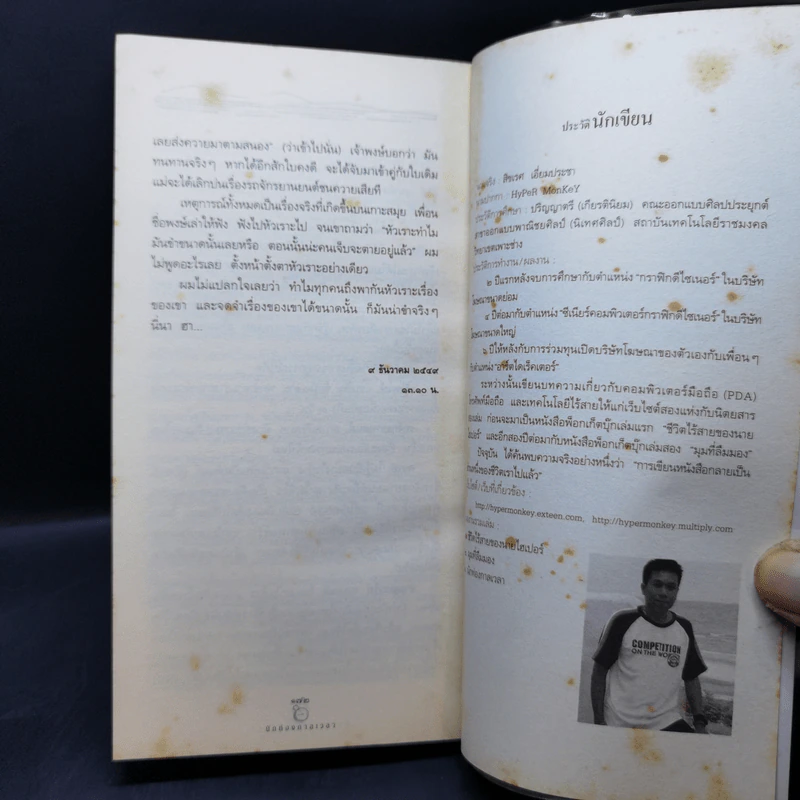 เลยส่งควายมาตามสนอง” (ว่าเข้าไปนั่น) เจ้าพงษ์บอกว่า มัน
ทนทานจริงๆ หากได้อีกสักใบคงดี จะได้จับมาเข้าคู่กับใบเดิม
แม่จะได้เลิกบ่นเรื่องรถจักรยานยนต์ชนควายเสียที
เหตุการณ์ทั้งหมดเป็นเรื่องจริงที่เกิดขึ้นบนเกาะสมุย เพื่อน
ชื่อพงษ์เล่าให้ฟัง ฟังไปหัวเราะไป จนเขาถามว่า “หัวเราะทำไม
มันขำขนาดนั้นเลยหรือ ตอนนั้นน่ะคนเจ็บจะตายอยู่แล้ว” ผม
ไม่พูดอะไรเลย ตั้งหน้าตั้งตาหัวเราะอย่างเดียว
ผมไม่แปลกใจเลยว่า ทำไมทุกคนถึงพากันหัวเราะเรื่อง
ของเขา และจดจำเรื่องของเขาได้ขนาดนั้น ก็มันน่าขำจริงๆ
นี่นา ฮา...
๙ ธันวาคม ๒๕๔๙
๑๓.๑๐ น.
๑๔๒
ประวัตินักเขียน
จริง : สิชเรศ เอี่ยมประชา
ปากกา : HyPeR MonKeY
ประวัติการศึกษา : ปริญญาตรี (เกียรตินิยม) คณะออกแบบศิลปประยุกต์
สาขาออกแบบพาณิชยศิลป์ (นิเทศศิลป์) สถาบันเทคโนโลยีราชมงคล
วิทยาเขตเพาะช่าง
ประวัติการทำงาน/ผลงาน :
๒ ปีแรกหลังจบการศึกษากับตำแหน่ง “กราฟิกดีไซเนอร์” ในบริษัท
โฆษณาขนาดย่อม
๔ ปีต่อมากับตำแหน่ง “ซีเนียร์คอมพิวเตอร์กราฟิกดีไซเนอร์” ในบริษัท
โฆษณาขนาดใหญ่
๖ ปีให้หลังกับการร่วมทุนเปิดบริษัทโฆษณาของตัวเองกับเพื่อนๆ
กับตำแหน่ง “อาร์ตไดเร็คเตอร์”
ระหว่างนั้นเขียนบทความเกี่ยวกับคอมพิวเตอร์มือถือ (PDA)
โทรศัพท์มือถือ และเทคโนโลยีไร้สายให้แก่เว็บไซต์สองแห่งกับนิตยสาร
เล่ม ก่อนจะมาเป็นหนังสือพ็อกเก็ตบุ๊กเล่มแรก “ชีวิตไร้สายของนาย
ไฮเปอร์” และอีกสองปีต่อมากับหนังสือพ็อกเก็ตบุ๊กเล่มสอง “มุมที่ลืมมอง”
ปัจจุบัน ได้ค้นพบความจริงอย่างหนึ่งว่า “การเขียนหนังสือกลายเป็น
ส่วนหนึ่งของชีวิตเราไปแล้ว”
เว็บที่เกี่ยวข้อง :
http://hypermonkey.exteen.com, http://hypermonkey.multiply.com
ชีวิตไร้สายของนายไฮเปอร์
มุมที่ลืมมอง
กาลเวลา
COMPETITION
ON THE WOR